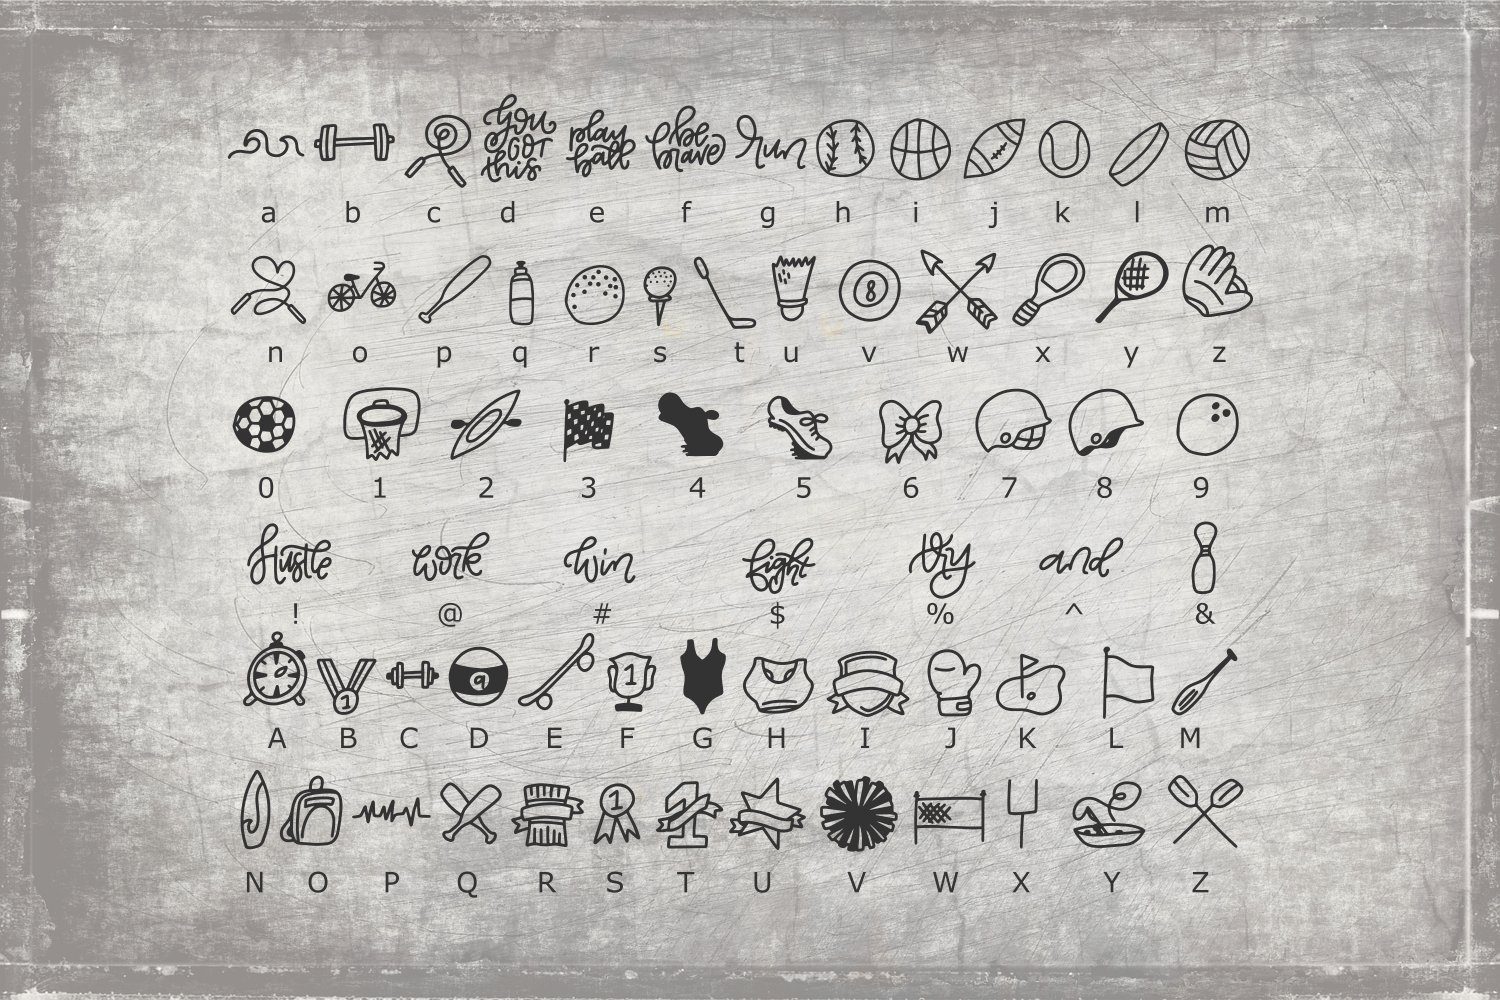 you got this
play ball
be brave
run
a b c d e f g h i j k l m
8
n o p q r s t u v w x y z
0 1 2 3 4 5 6 7 8 9
hustle work win fight try and
! @ # $ % ^ &
1 9 1
A B C D E F G H I J K L M
1 1
N O P Q R S T U V W X Y Z